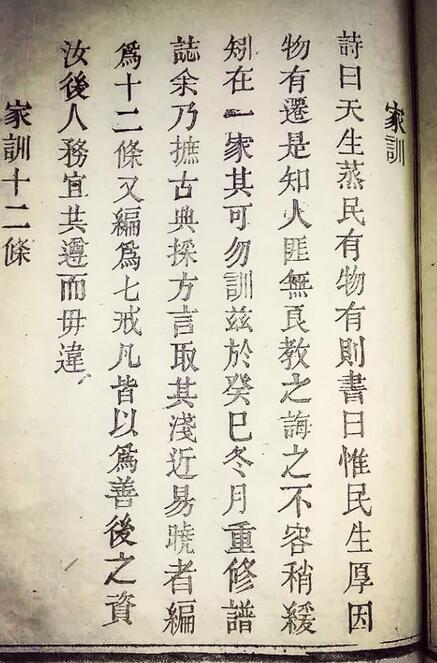 家訓
詩曰天生蒸民有物有則書曰惟民生厚因
物有遷是知人匪無良教之誨之不容稍緩
矧在一家其可勿訓兹於癸巳冬月重修譜
誌余乃摭古典探方言取其淺近易曉者編
爲十二條又編爲七戒凡皆以爲善後之資
汝後人務宜共遵而毋違
家訓十二條